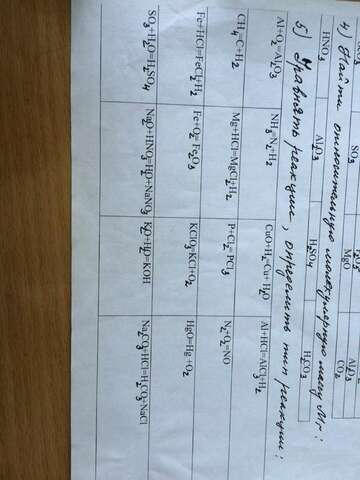 Al₂O₃
SO₃ MgO CO₂
4) Найти относительную молекулярную массу Mr:
HNO₃ Al₂O₃ H₂SO₄ H₂CO₃
5) Уравнять реакции, определить тип реакции:
Al+O₂=Al₂O₃ NH₃=N₂+H₂ CuO+H₂=Cu+H₂O Al+HCl=AlCl₃+H₂
CH₄=C+H₂ Mg+HCl=MgCl₂H₂ P+Cl₂=PCl₃ N₂+O₂=NO
Fe+HCl=FeCl₂+H₂ Fe+O₂=Fe₂O₃ KClO₃=KCl+O₂ HgO=Hg+O₂
SO₃+H₂O=H₂SO₄ Na₂O+HNO₃=H₂O+NaNO₃ K₂O+H₂O=KOH Na₂CO₃+HCl=H₂CO₃+NaCl